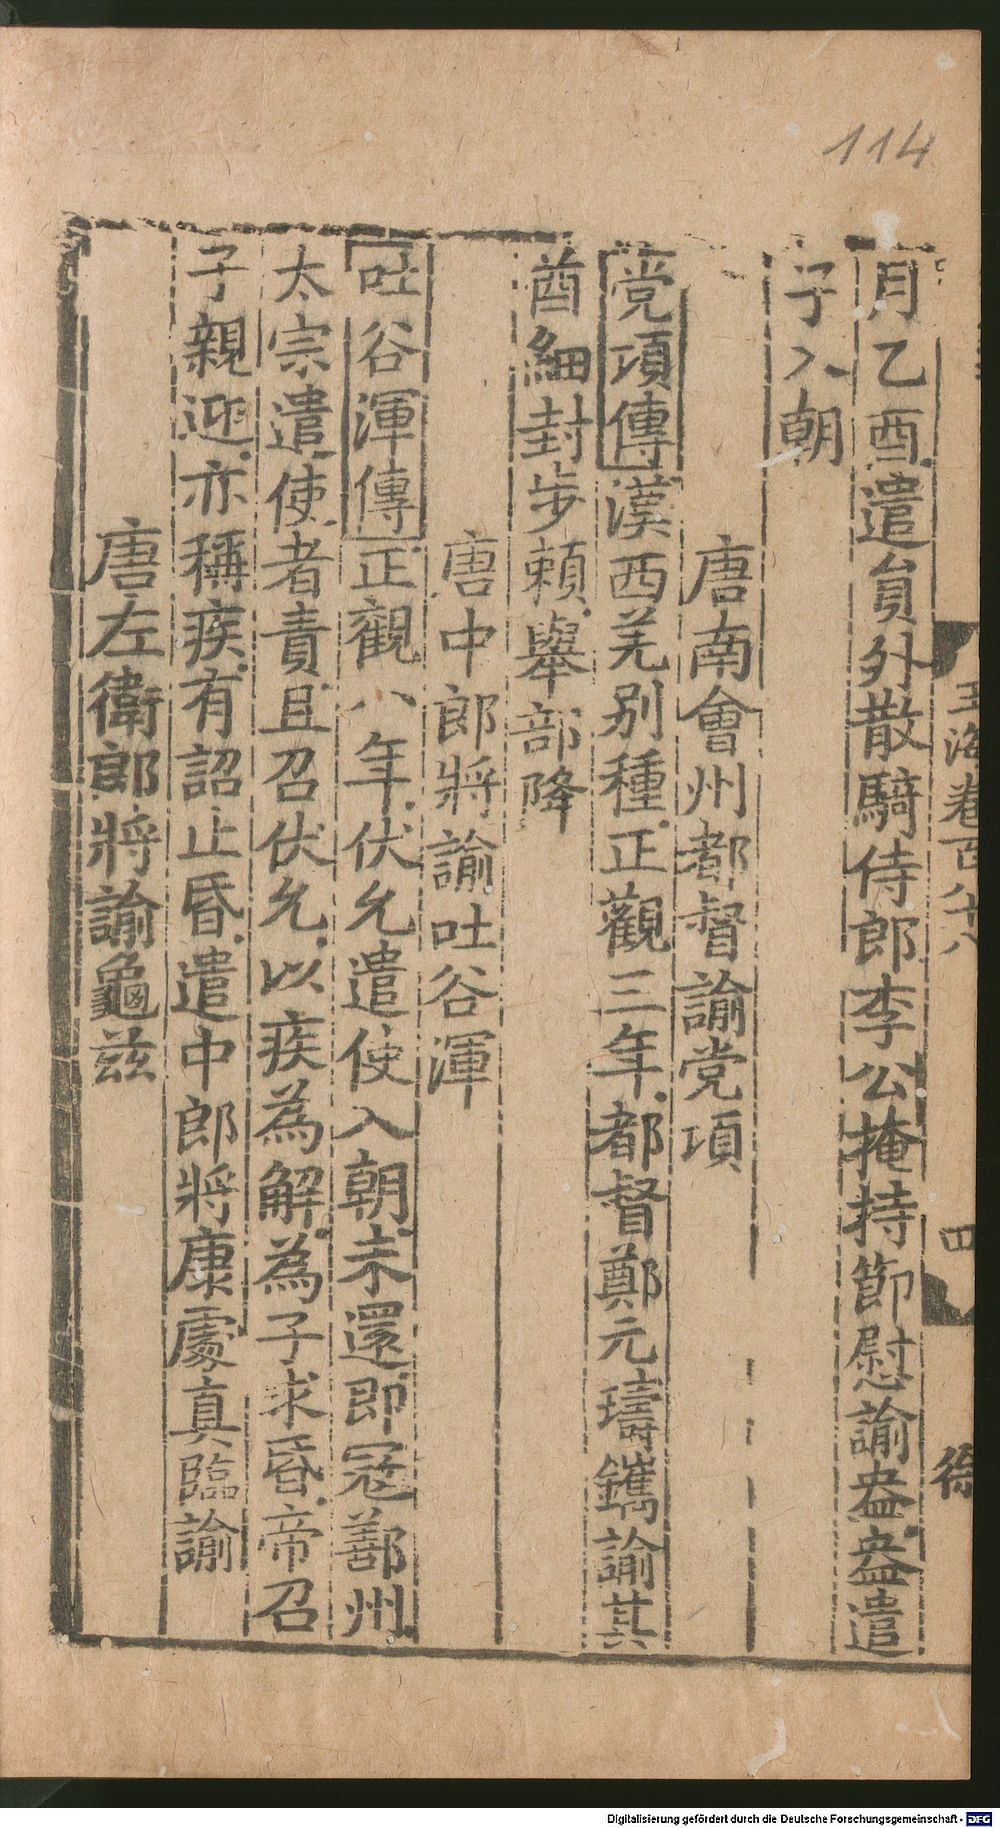 114
玉海卷百八十八
四
月乙酉遣員外散騎侍郎李公掩持節慰諭盎盎遣
子入朝
唐南會州都督諭党項
党項傳漢西羌别種正觀三年都督鄭元璹鐫諭其
酋細封步頼舉部降
唐中郎將諭吐谷渾
吐谷渾傳正觀八年伏允遣使入朝未還即冦鄯州
太宗遣使者責且召伏允以疾為解為子求昏帝召
子親迎亦稱疾有詔止昏遣中郎將康處真臨諭
唐左衛郎將諭龜玆
Digitalisierung gefördert durch die Deutsche Forschungsgemeinschaft - DFG